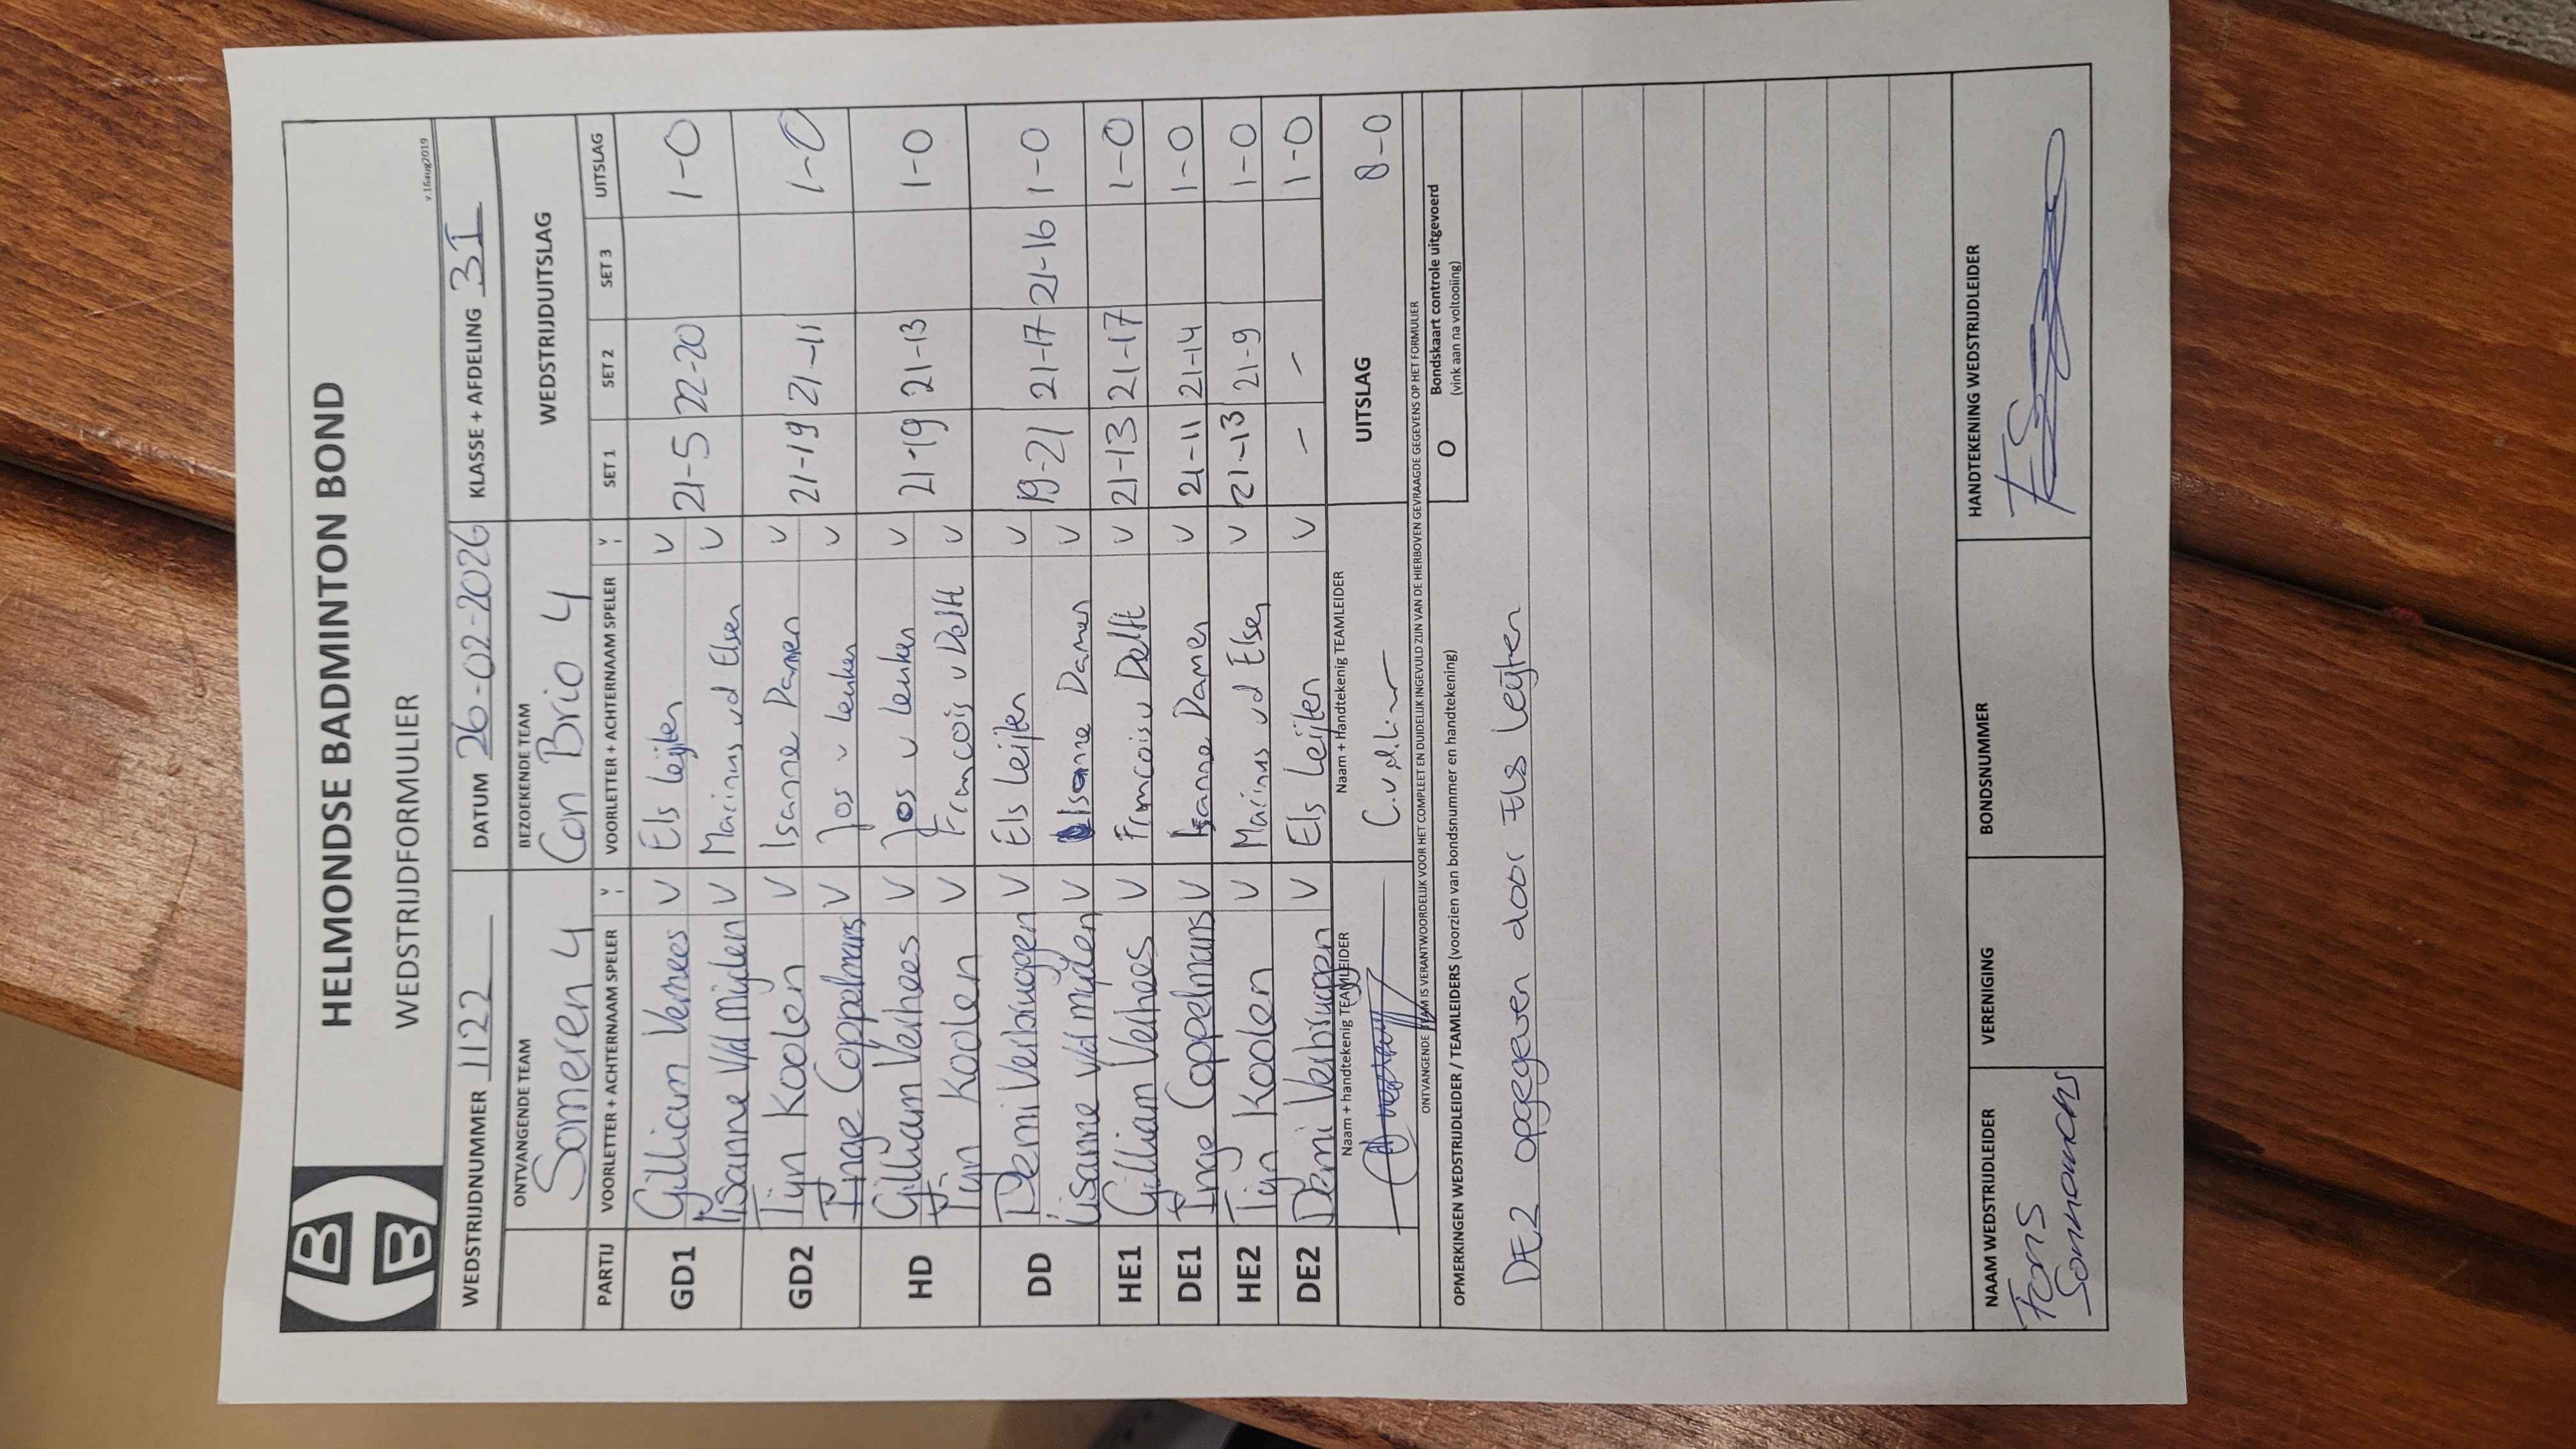 HELMONDSE BADMINTON BOND
WEDSTRIJDFORMULIER
v.16aug2019
WEDSTRIJDNUMMER 1122 DATUM 26-02-2026 KLASSE + AFDELING 3I
ONTVANGENDE TEAM BEZOEKENDE TEAM WEDSTRIJDUITSLAG
Someren 4 Con Brio 4
PARTIJ VOORLETTER + ACHTERNAAM SPELER V VOORLETTER + ACHTERNAAM SPELER V SET 1 SET 2 SET 3 UITSLAG
GD1 Gilliam Verhees V Els Leijten V 21-5 22-20 1-0
Lisanne v/d Mijden V Marinus vd Elsen V
GD2 Tijn Koolen V Isanne Damen V 21-19 21-11 1-0
Inge Coppelmans V Jos v Leuken V
HD Gilliam Verhees V Jos v Leuken V 21-19 21-13 1-0
Tijn Koolen V Francois v Delft V
DD Demi Verbruggen V Els Leijten V 19-21 21-17 21-16 1-0
Lisanne v/d Mijden V Isanne Damen V
HE1 Gilliam Verhees V Francois v Delft V 21-13 21-17 1-0
DE1 Inge Coppelmans V Isanne Damen V 21-11 21-14 1-0
HE2 Tijn Koolen V Marinus vd Elsen V 21-13 21-9 1-0
DE2 Demi Verbruggen V Els Leijten V - - 1-0
Naam + handtekenig TEAMLEIDER Naam + Handtekenig TEAMLEIDER UITSLAG 8-0
ONTVANGENDE TEAM IS VERANTWOORDELIJK VOOR HET COMPLEET EN DUIDELIJK INGEVULD ZIJN VAN DE HIERBOVEN GEVRAAGDE GEGEVENS OP HET FORMULIER
OPMERKINGEN WEDSTRIJDLEIDER / TEAMLEIDERS (voorzien van bondsnummer en handtekening) O Bondskaart controle uitgevoerd
(vink aan na voltooiing)
DE2 opgegeven door Els Leijten
NAAM WEDSTRIJDLEIDER VERENIGING BONDSNUMMER HANDTEKENING WEDSTRIJDLEIDER
Fons
Sonnemans